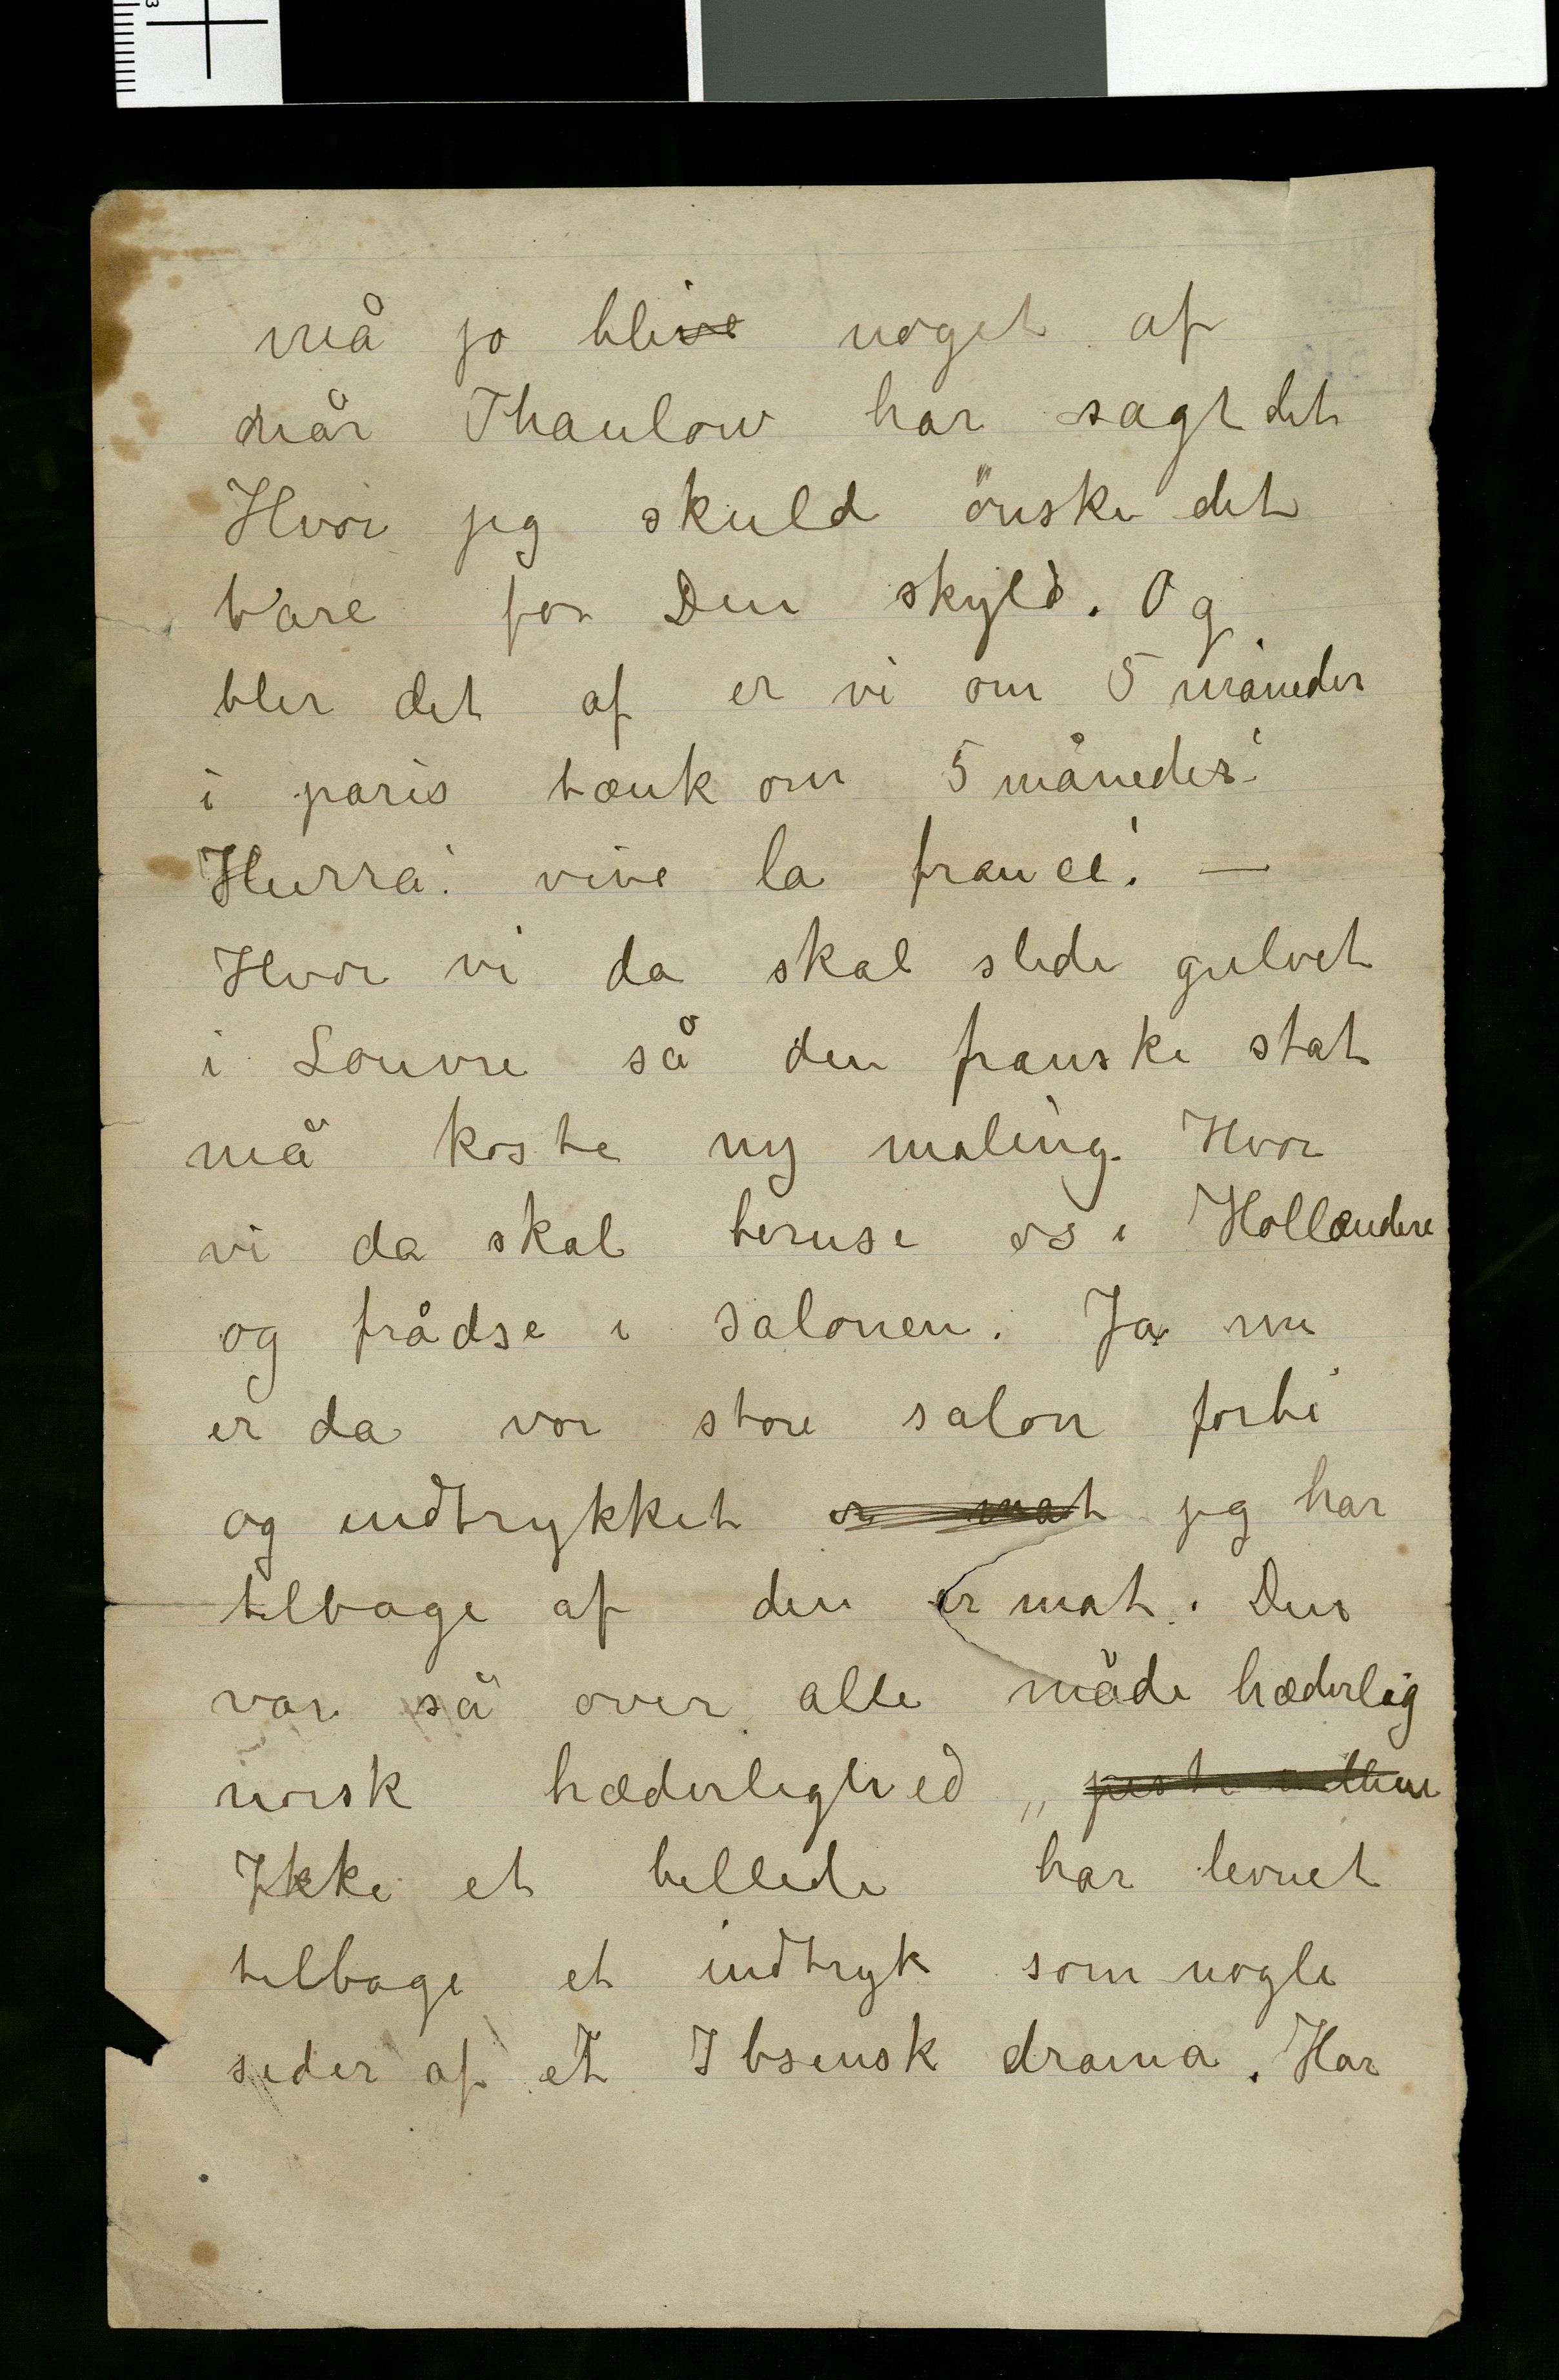 må jo blive noget af
når Thaulow har sagt det
Hvor jeg skuld önske det
bare for Din skyld. Og
blir det af er vi om 5 måneder
i paris tænk om 5 måneder!
Hurra! vive la france! —
Hvor vi da skal slide gulvet
i Louvre så den franske stat
må koste ny maling. Hvor
vi da skal beruse os i Hollændere
og fråдse i salonen. Ja nu
er da vor store salon forbi
og indtrykket er mat jeg har
tilbage af den er mat. Den
var så over alle måde hæderlig
norsk hæderlighed „
Ikke et billede har levnet
tilbage et indtryk som nogle
sider af et Ibsensk drama. Har